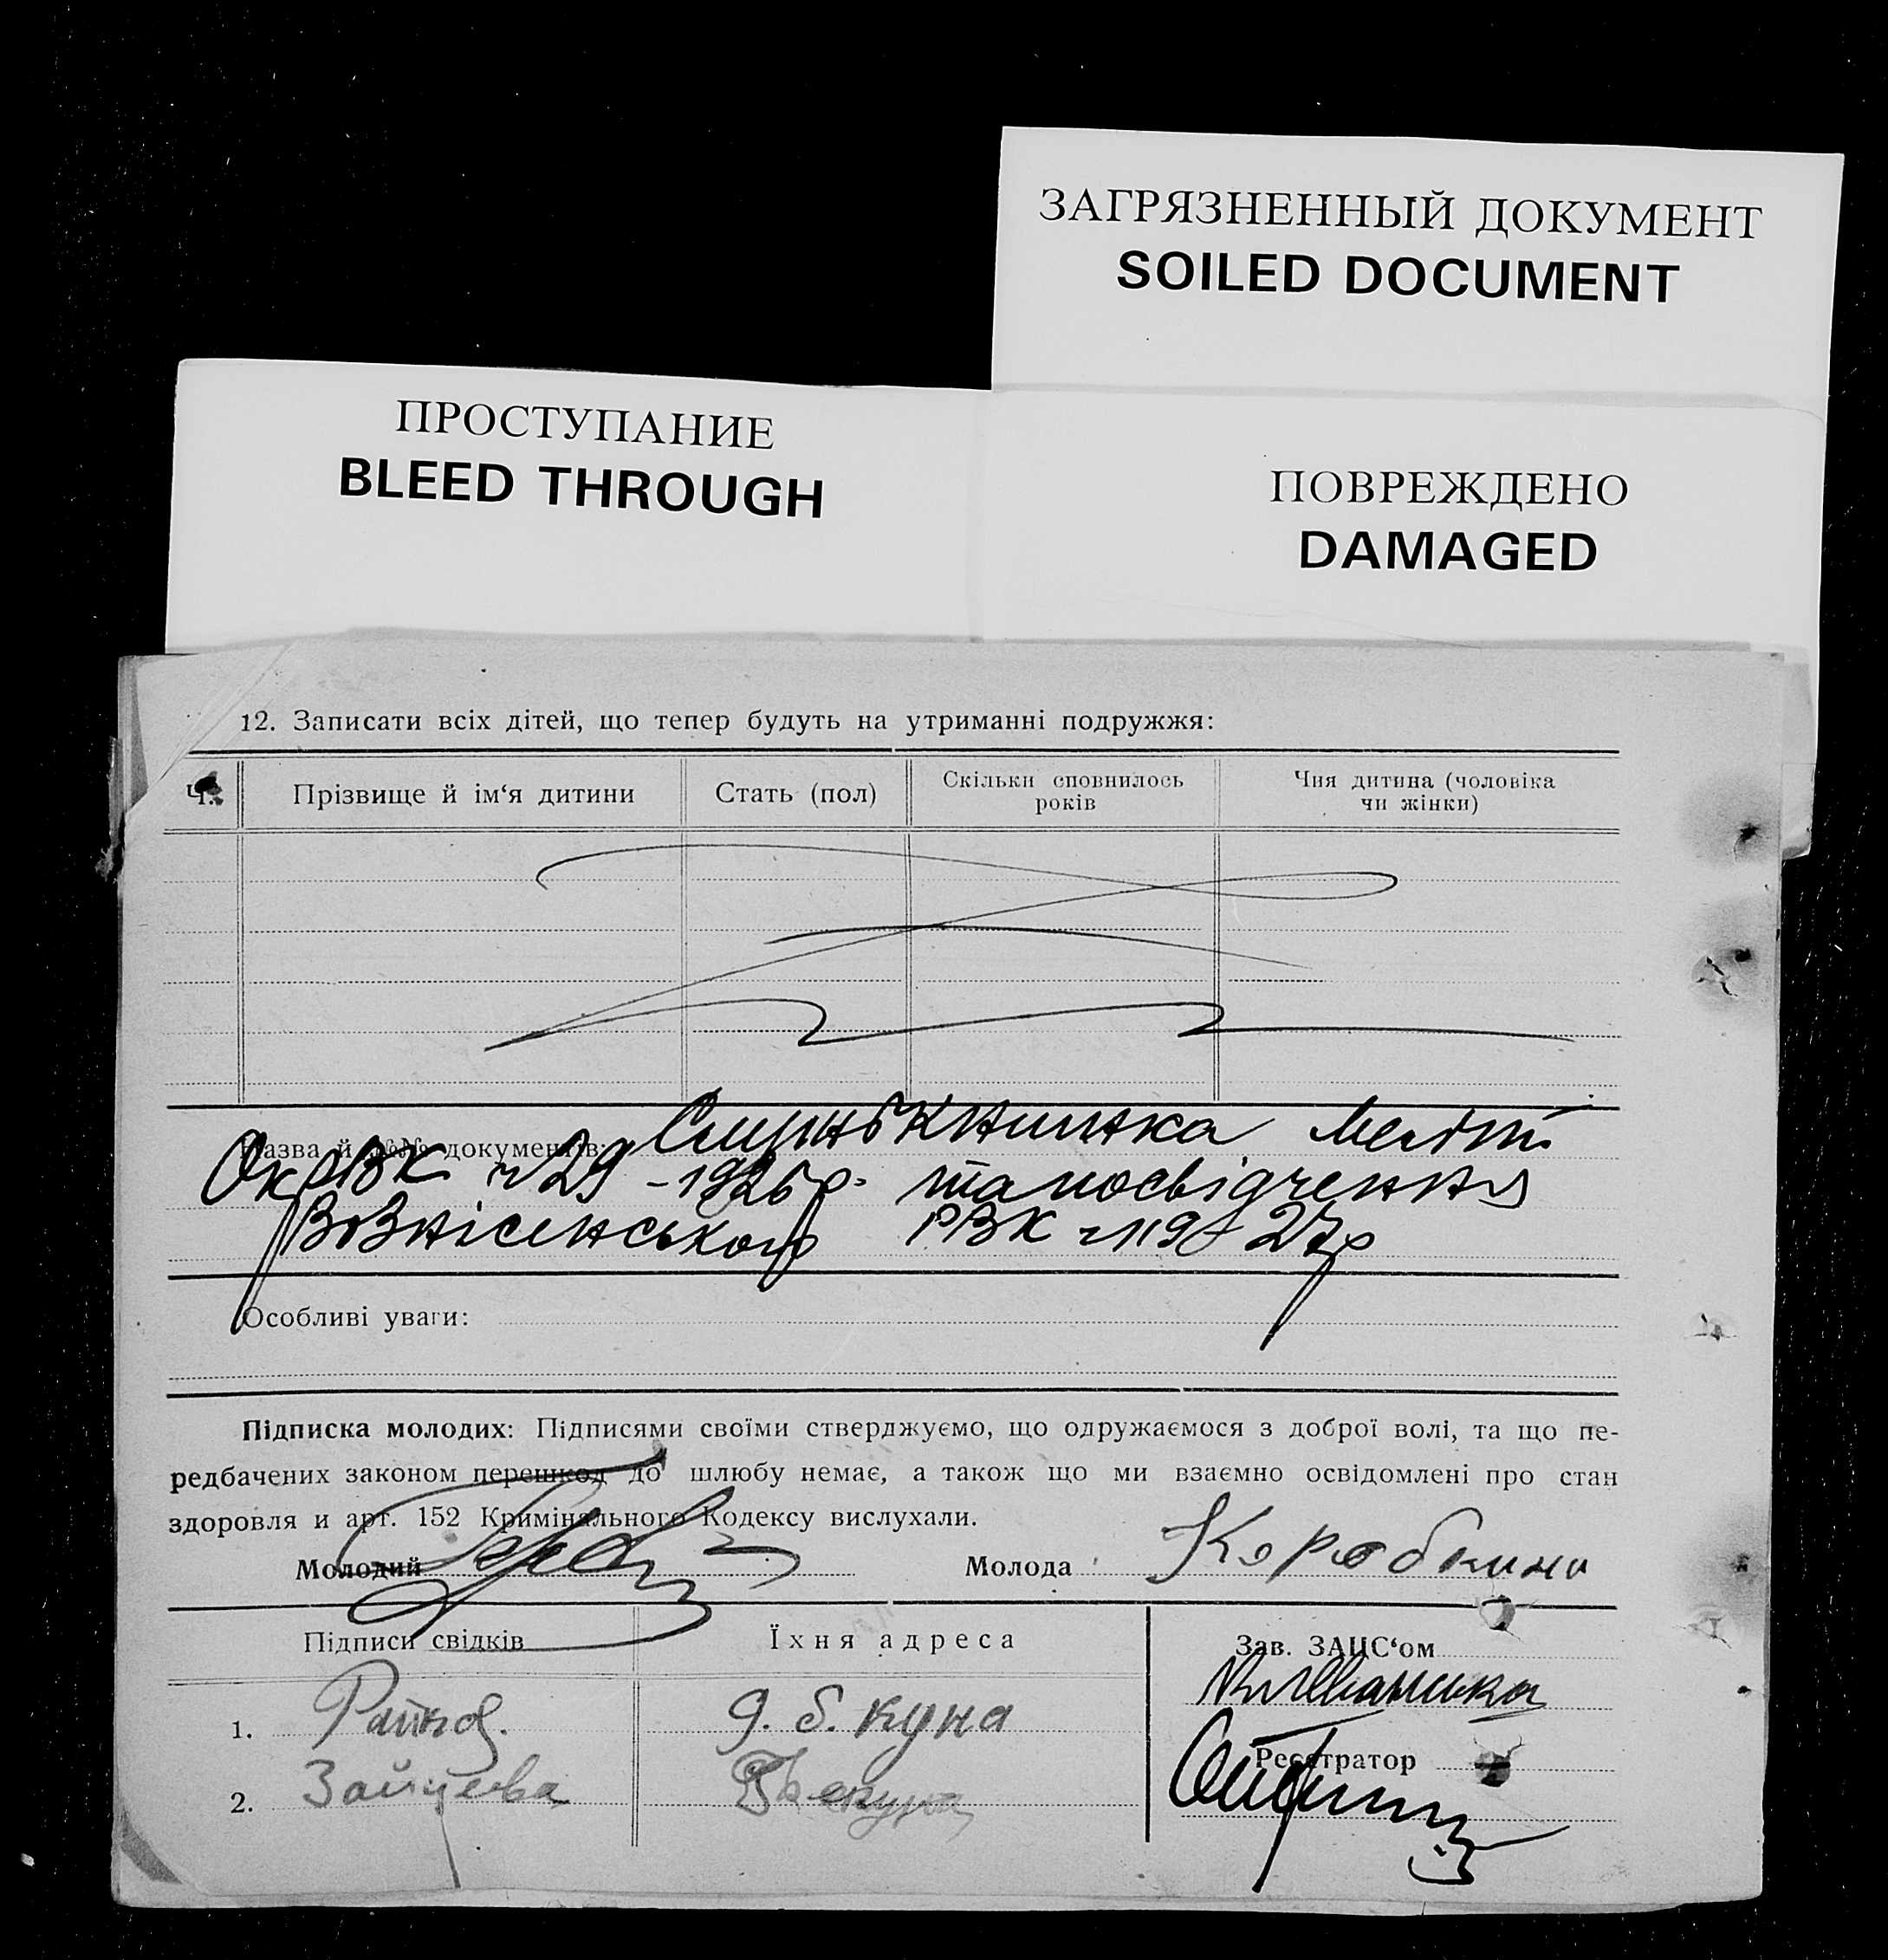 ЗАГРЯЗНЕННЫЙ ДОКУМЕНТ
SOILED DOCUMENT
ПРОСТУПАНИЕ
BLEED THROUGH
ПОВРЕЖДЕНО
DAMAGED
12. Записати всіх дітей, що тепер будуть на утриманні подружжя:
Ч.
Прізвище й ім‘я дитини
Стать (пол)
Скільки сповнилось
років
Чия дитина (чоловіка
чи жінки)
Назва й №№ документів:
29 -1926р. та посвідчення
Вознісенського РВК 27р
Особливі уваги:
Підписка молодих: Підписями своїми стверджуємо, що одружаємося з доброї волі, та що пе-
редбачених законом перешкод до шлюбу немає, а також що ми взаємно освідомлені про стан
здоровля и арт. 152 Кримінального Кодексу вислухали.
Молодий
Молода Коробкина
Підписи свідків
Їхня адреса
Зав. ЗАЦС‘ом
1.
Реєстратор
2. Зайцева